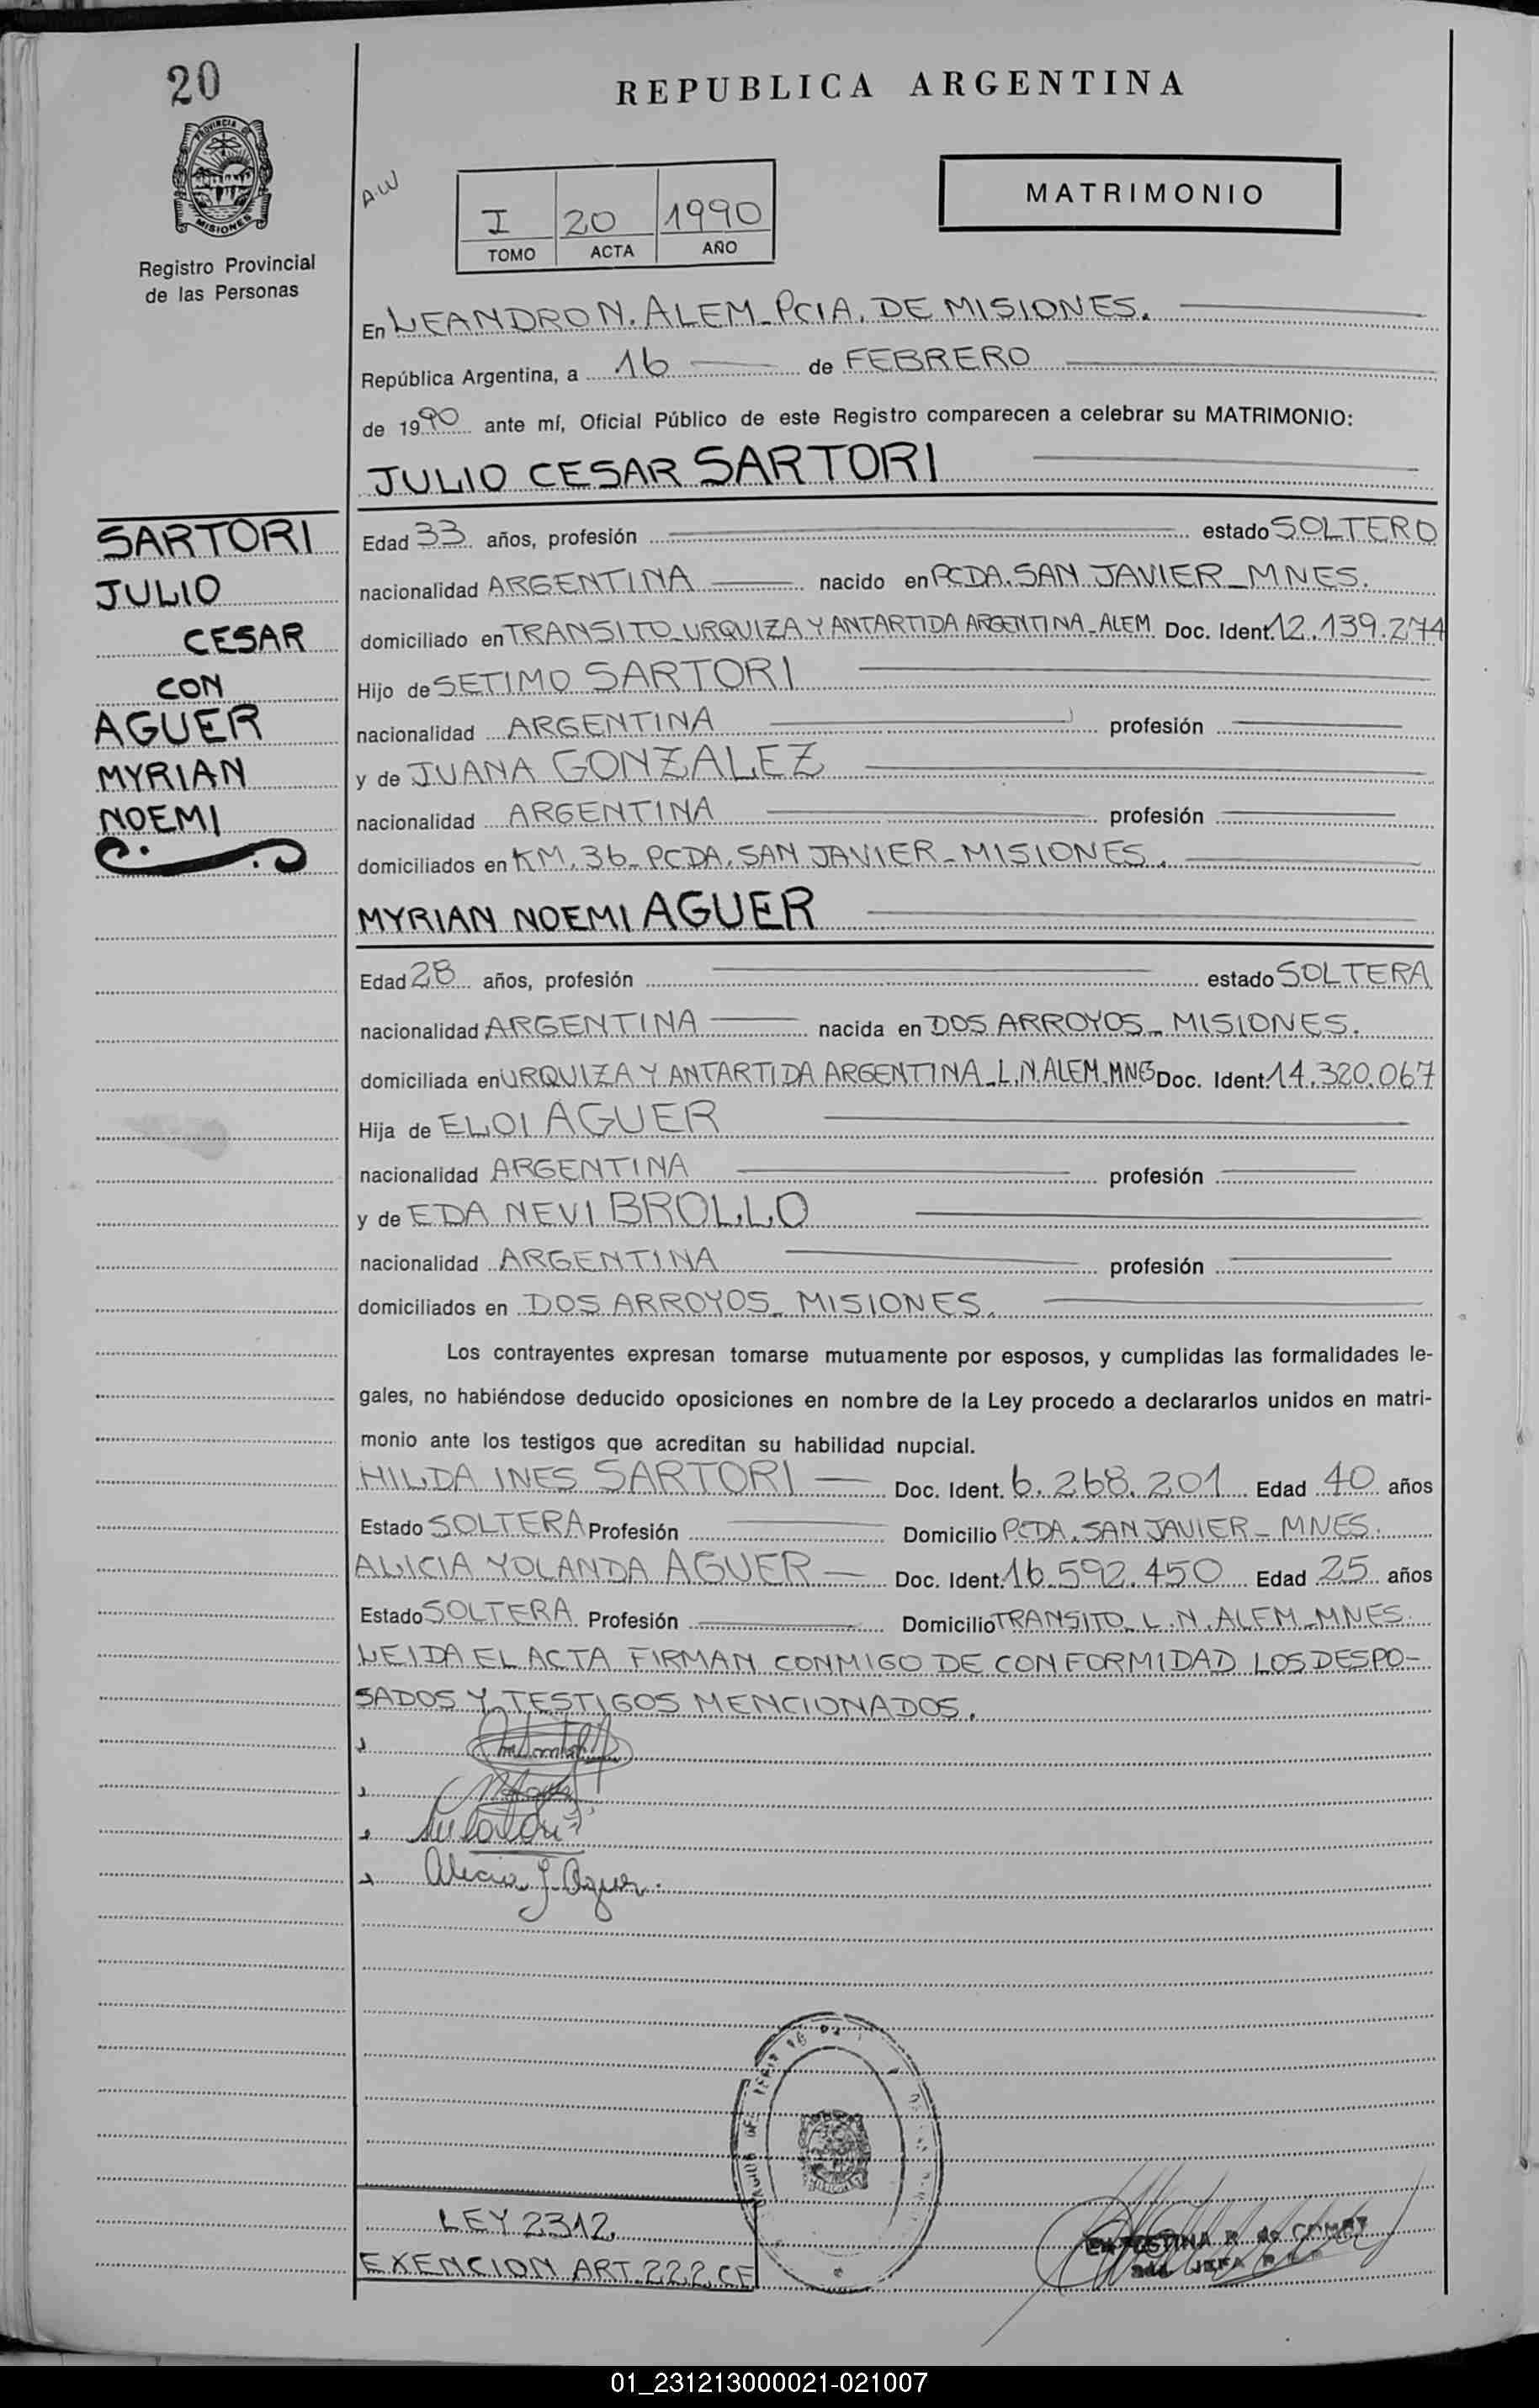 20
REPUBLICA ARGENTINA
PROVINCIA DE
MISIONES
Registro Provincial
de las Personas
A.W
I 20 1990
TOMO ACTA AÑO
MATRIMONIO
En LEANDRO N. ALEM_PCIA. DE MISIONES.
República Argentina, a 16 de FEBRERO
de 1990 ante mí, Oficial Público de este Registro comparecen a celebrar su MATRIMONIO:
JULIO CESAR SARTORI
SARTORI
JULIO
CESAR
CON
AGUER
MYRIAN
NOEMI
Edad 33 años, profesión estado SOLTERO
nacionalidad ARGENTINA nacido en PCDA. SAN JAVIER_MNES.
domiciliado en TRANSITO_URQUIZA Y ANTARTIDA ARGENTINA_ALEM Doc. Ident. 12.139.274
Hijo de SETIMO SARTORI
nacionalidad ARGENTINA profesión
y de JUANA GONZALEZ
nacionalidad ARGENTINA profesión
domiciliados en KM.36_PCDA. SAN JAVIER_MISIONES.
MYRIAN NOEMI AGUER
Edad 28 años, profesión estado SOLTERA
nacionalidad ARGENTINA nacida en DOS ARROYOS_MISIONES.
domiciliada en URQUIZA Y ANTARTIDA ARGENTINA_L.N.ALEM.MNES Doc. Ident. 14.320.067
Hija de ELOI AGUER
nacionalidad ARGENTINA profesión
y de EDA NEVI BROLLO
nacionalidad ARGENTINA profesión
domiciliados en DOS ARROYOS_MISIONES.
Los contrayentes expresan tomarse mutuamente por esposos, y cumplidas las formalidades le-
gales, no habiéndose deducido oposiciones en nombre de la Ley procedo a declararlos unidos en matri-
monio ante los testigos que acreditan su habilidad nupcial.
HILDA INES SARTORI Doc. Ident. 6.268.201 Edad 40 años
Estado SOLTERA Profesión Domicilio PCDA. SAN JAVIER_MNES.
ALICIA YOLANDA AGUER Doc. Ident. 16.592.450 Edad 25 años
Estado SOLTERA Profesión Domicilio TRANSITO_L.N.ALEM_MNES.
LEIDA EL ACTA FIRMAN CONMIGO DE CONFORMIDAD LOS DESPO-
SADOS Y TESTIGOS MENCIONADOS.
Alicia Y. Aguer.
LEY 2312.
EXENCION ART. 222.CF
01_231213000021-021007